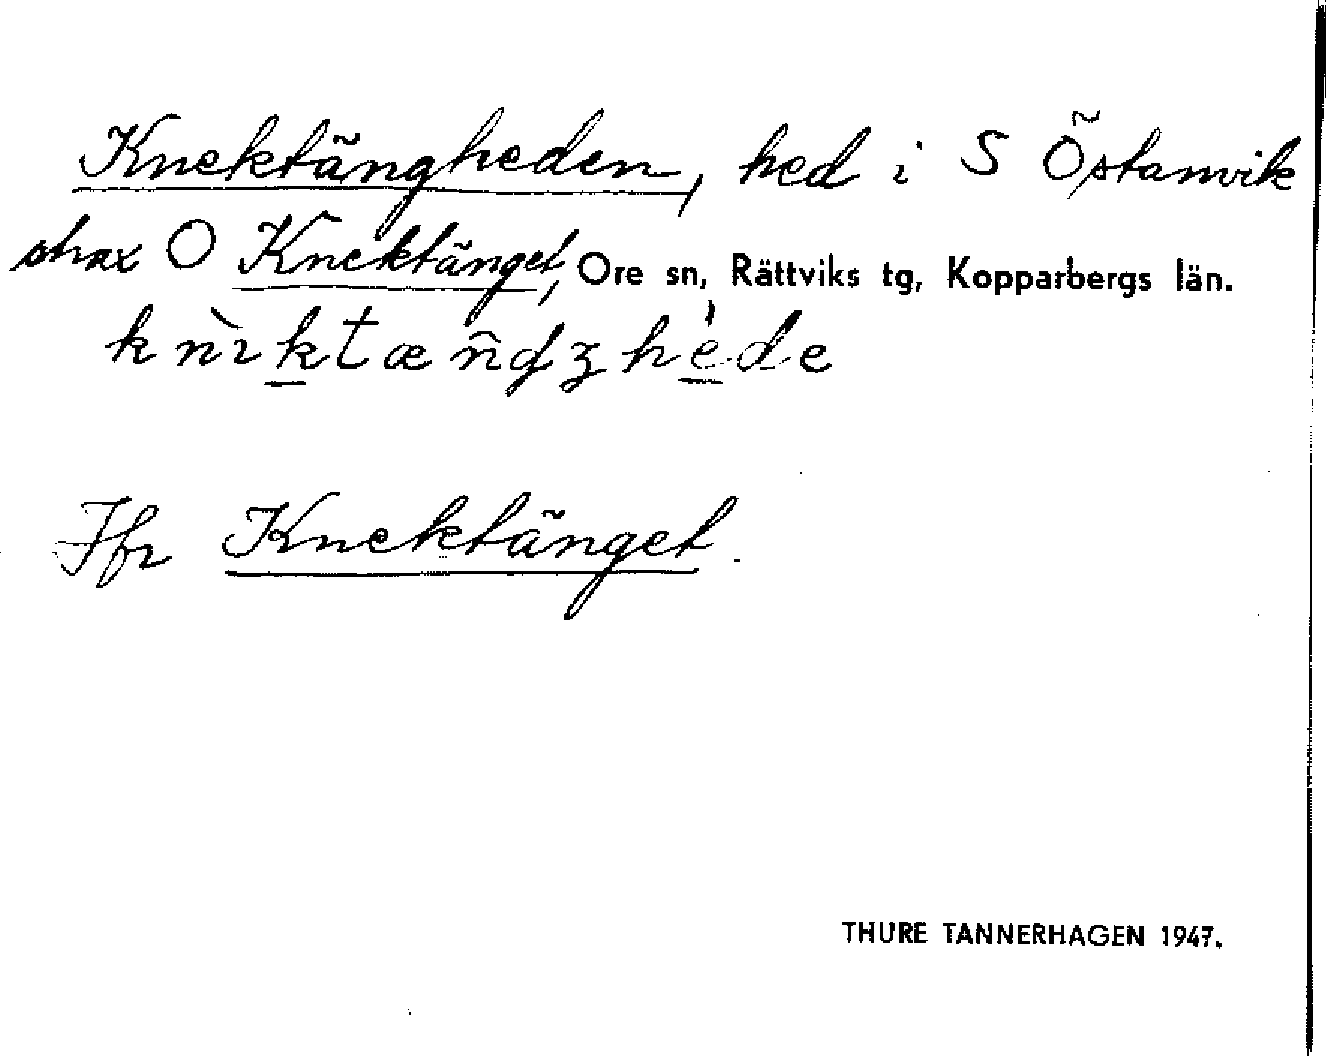 Knektängheden, hed i S Östanvik
strax O Knektänget, Ore sn, Rättviks tg, Kopparbergs län.
knɩ̀ktæn̂ʤhède
Jfr Knektänget.
THURE TANNERHAGEN 1947.